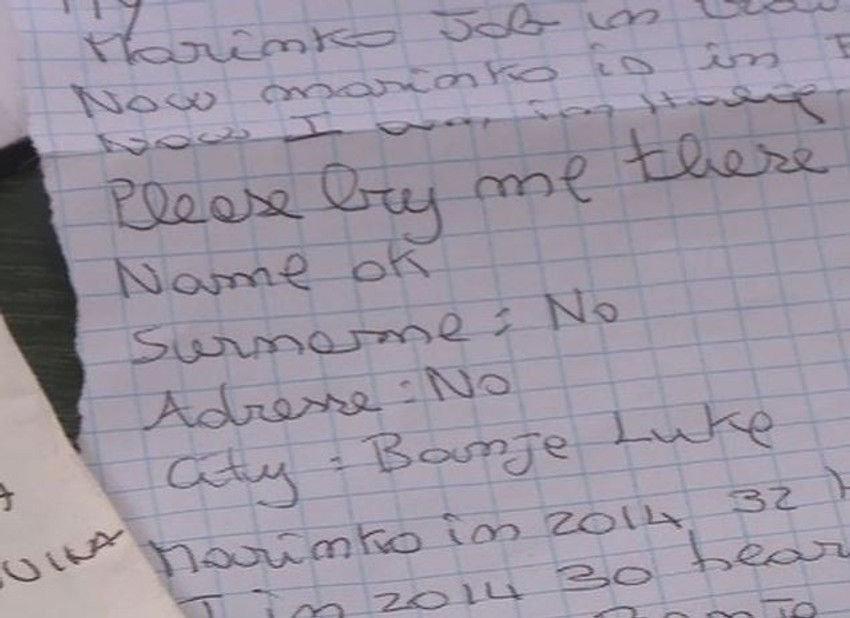 Marinko Job in
Now marinko is in
Now I am in
Please try me there
Name ok
Surname : No
Adresse : No
City : Banje Luke
marinko in 2014 32
I in 2014 30 hear